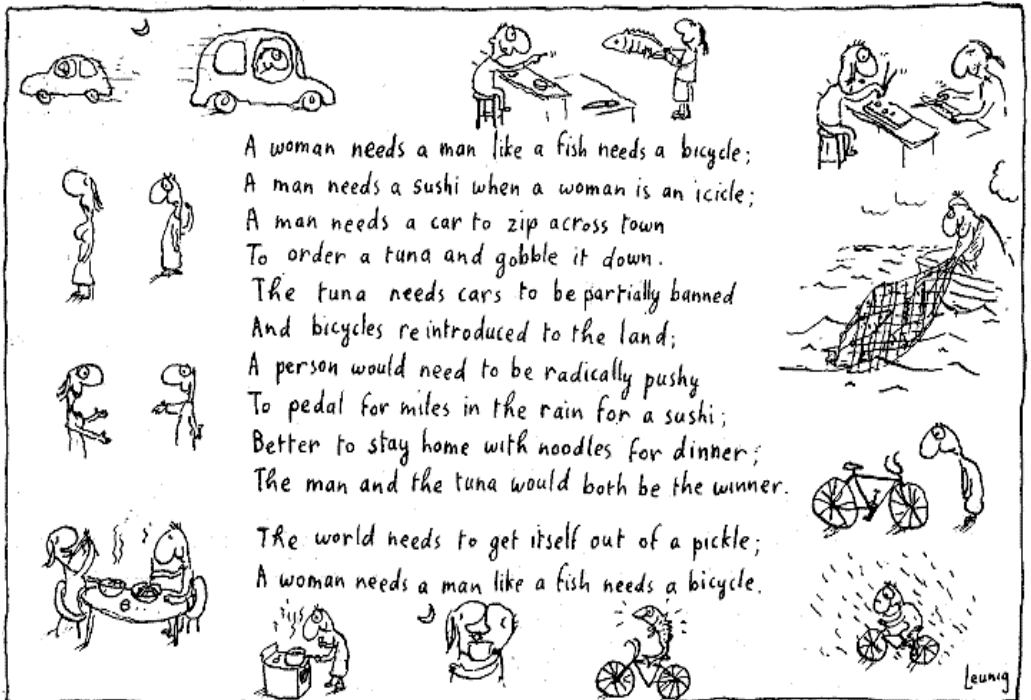 A woman needs a man like a fish needs a bicycle;
A man needs a sushi when a woman is an icicle;
A man needs a car to zip across town
To order a tuna and gobble it down.
The tuna needs cars to be partially banned
And bicycles reintroduced to the land;
A person would need to be radically pushy
To pedal for miles in the rain for a sushi;
Better to stay home with noodles for dinner;
The man and the tuna would both be the winner.
The world needs to get itself out of a pickle;
A woman needs a man like a fish needs a bicycle.
Leunig